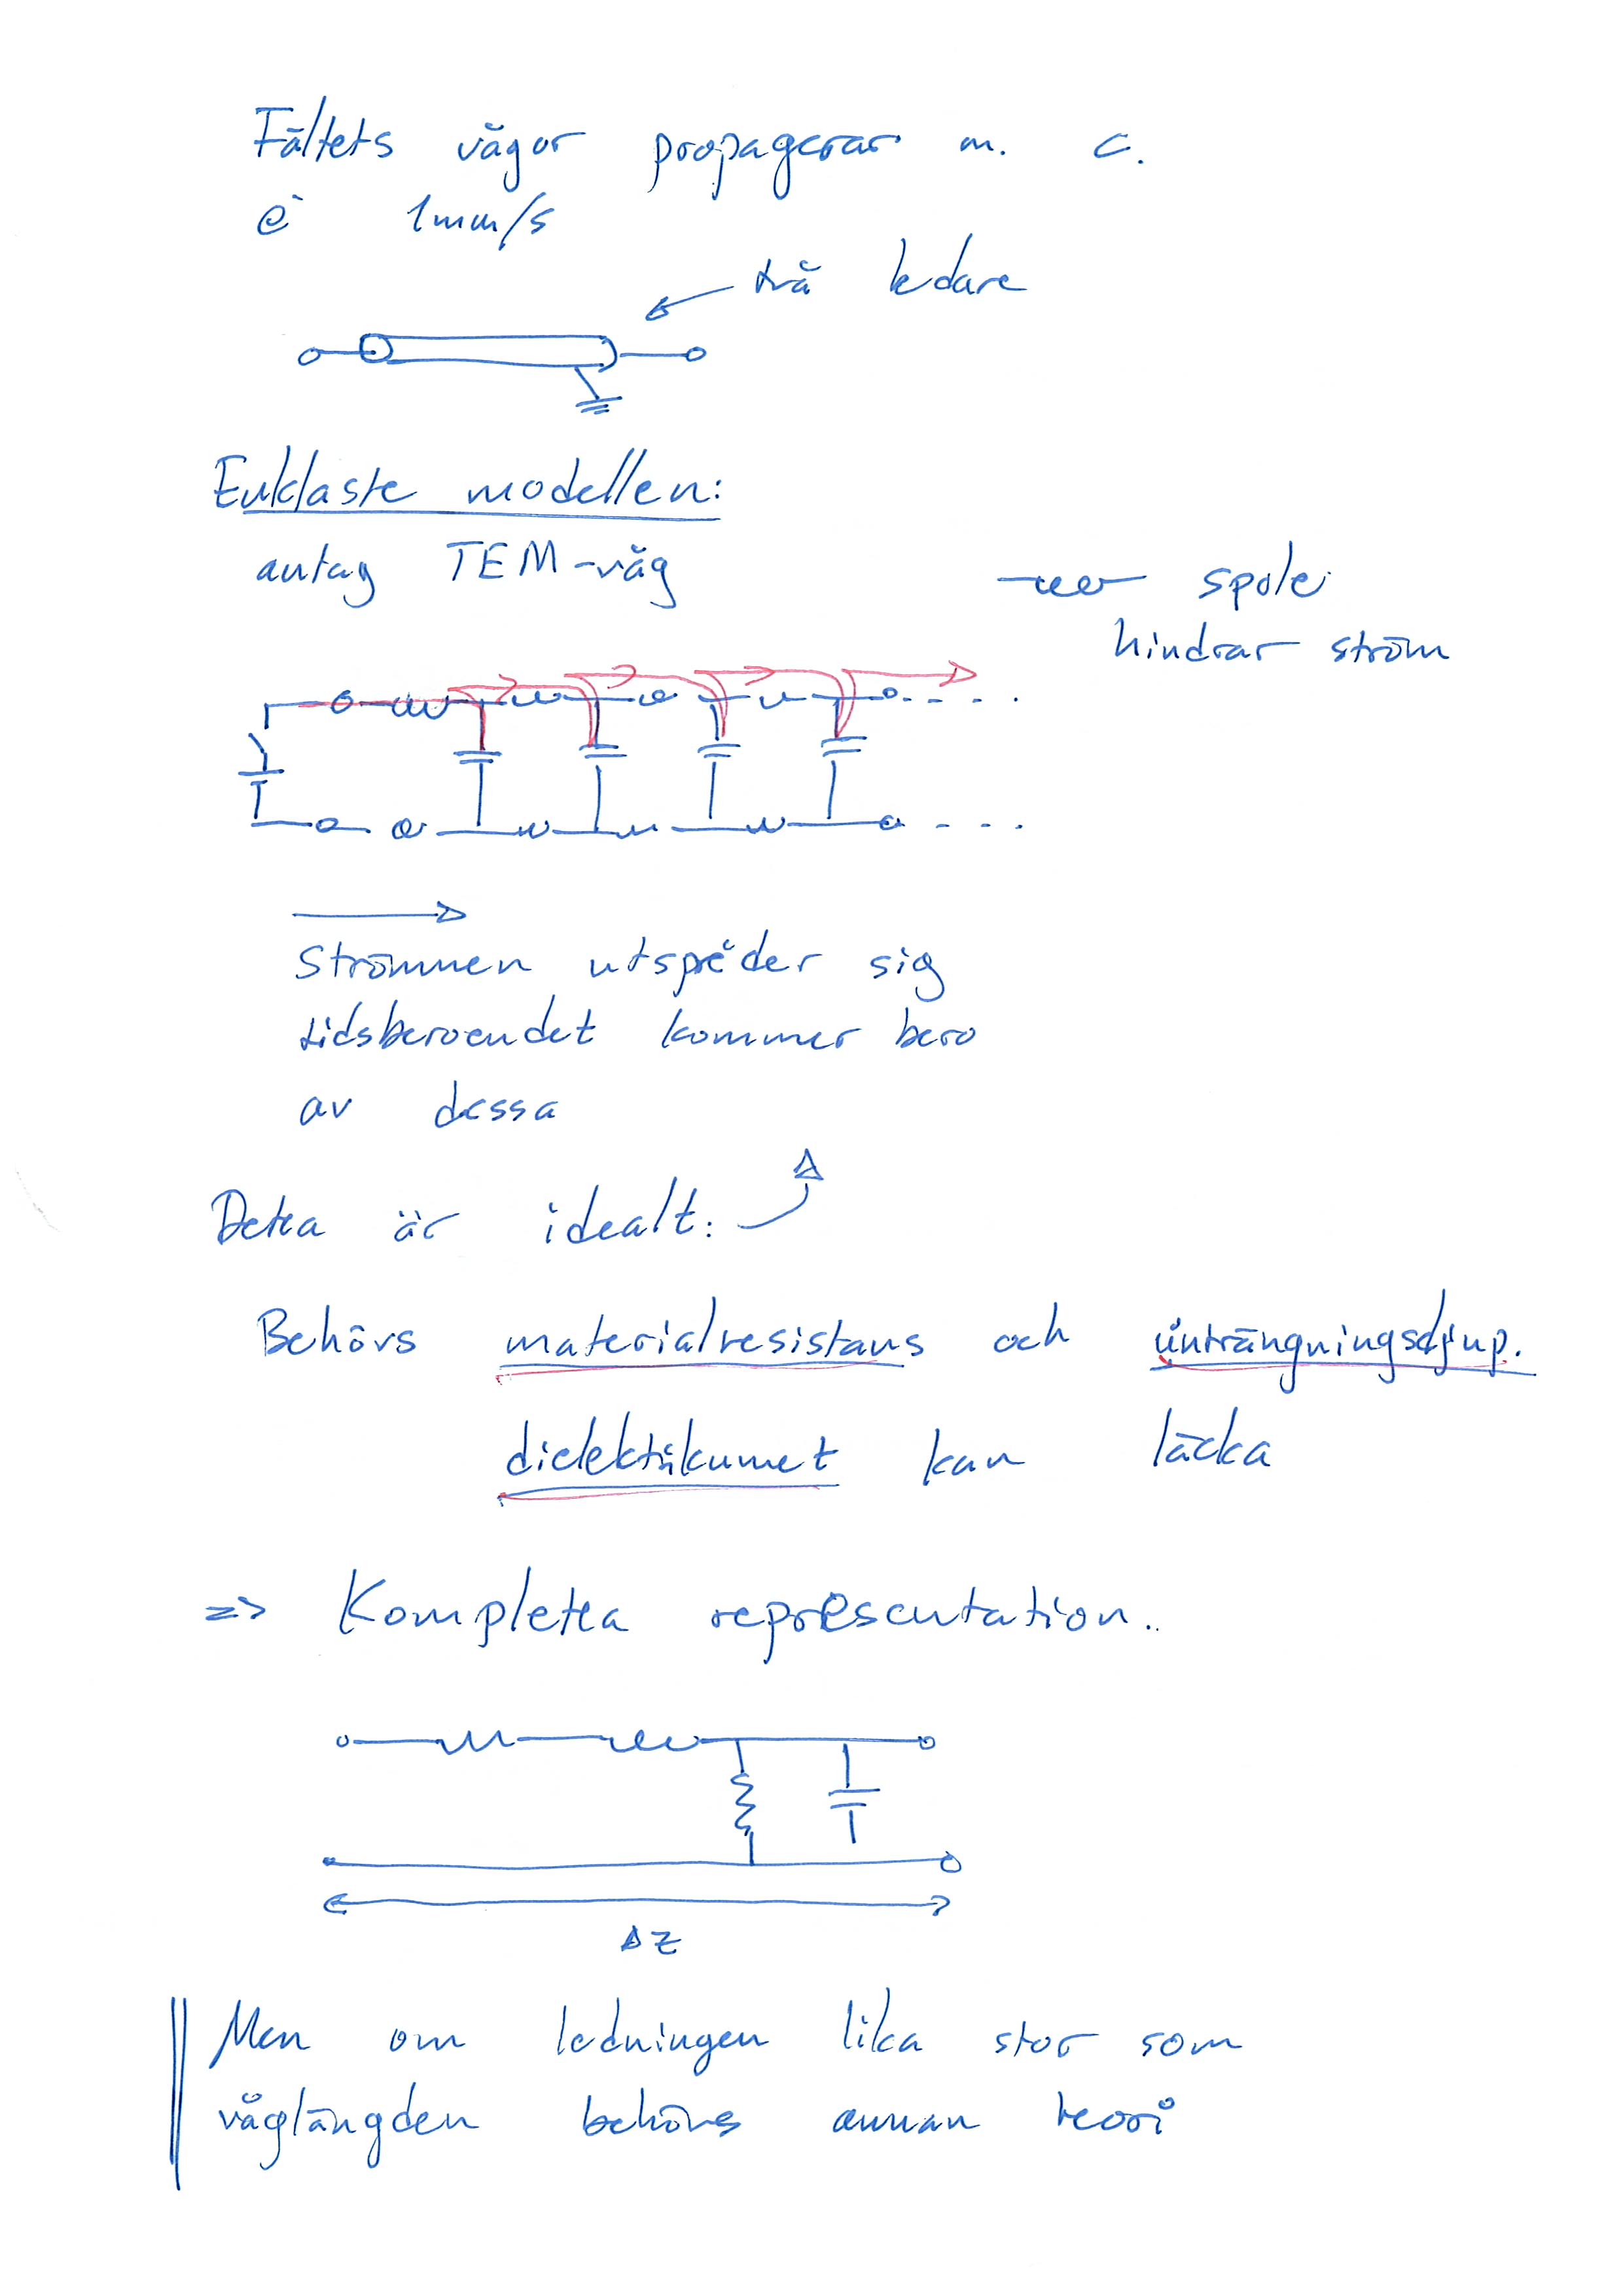 Fältets vågor propagerar m. c.
e⁻ 1mm/s
två ledare
Enklaste modellen:
antag TEM-våg
spole
hindrar ström
Strömmen utspäder sig
tidsberoendet kommer bero
av dessa
Detta är idealt:
Behövs materialresistans och inträngningsdjup.
dielektrikumet kan läcka
=> Kompletta representation.
Δz
Men om ledningen lika stor som
våglängden behövs annan teori